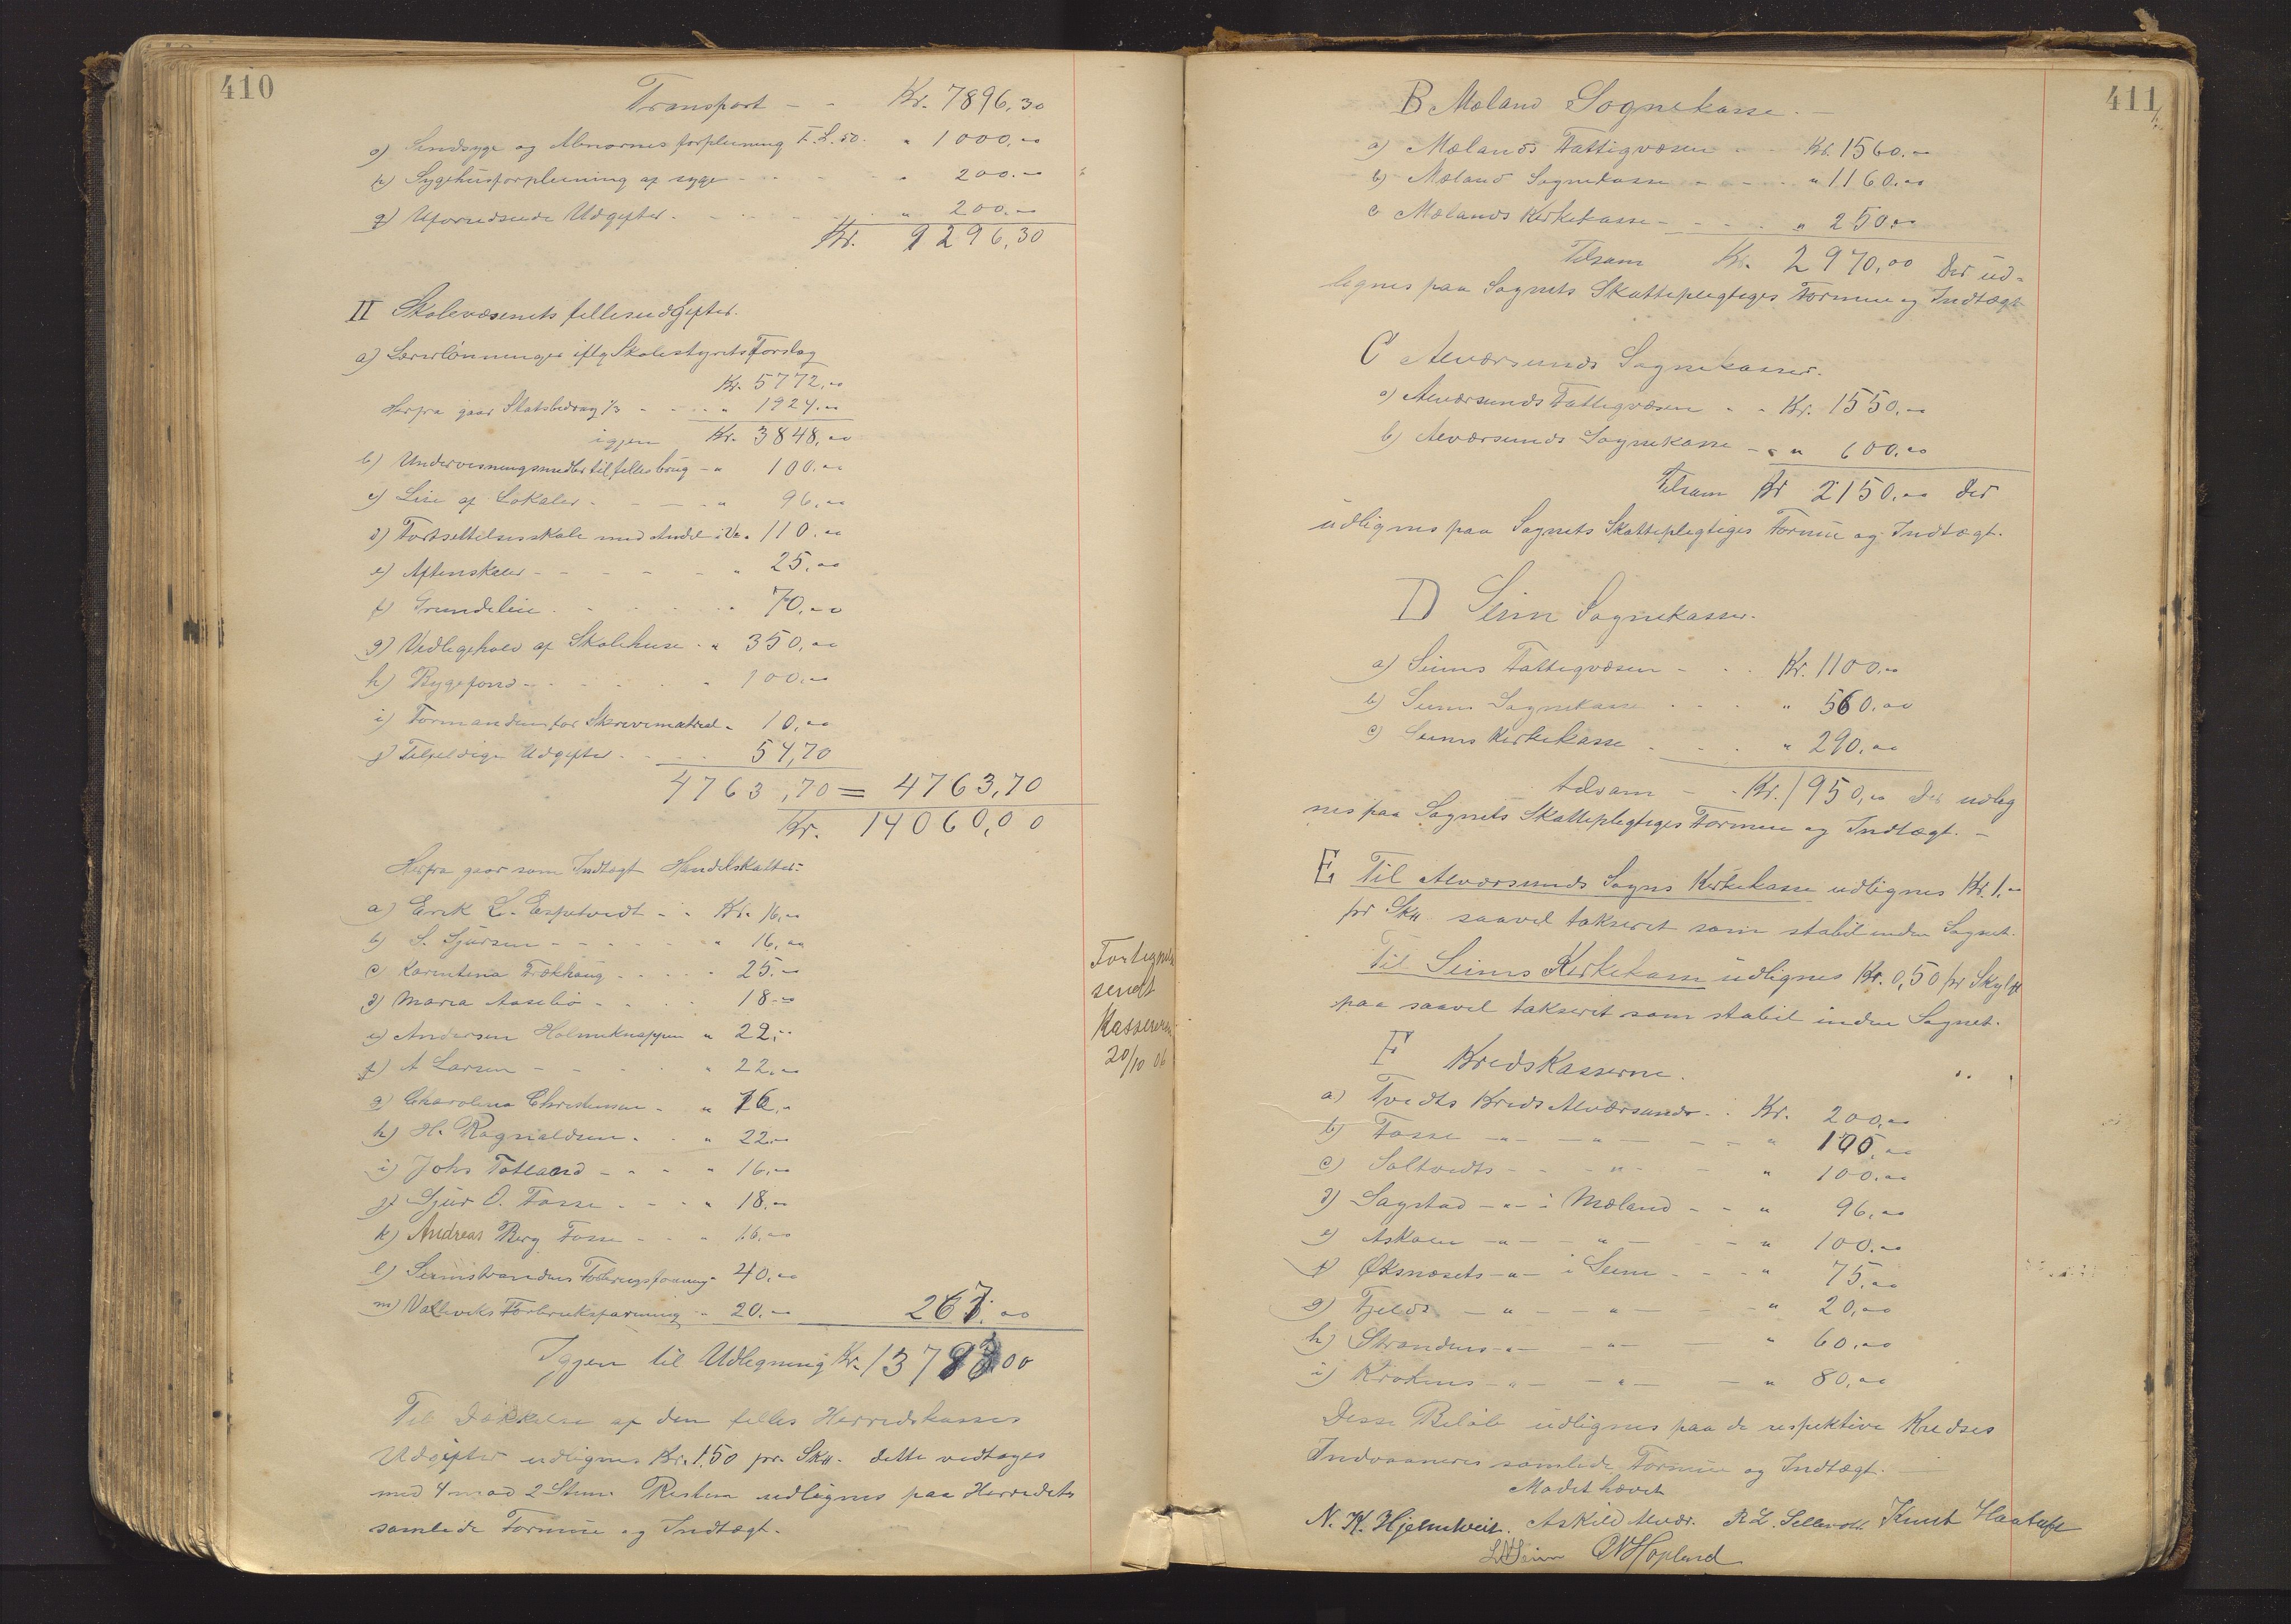 410
Transport - - Kr. 7896,30
o) Sindsyge og Abnormes forpleining F. L. 50. " 1000,00
p) Sygehusforpleining af syge - - - " 200.00
q) Uforudseede Udgifter. - - - " 200.00
Kr. 9296,30
II Skolevæsenets fellesudgifter.
a) Lærerlönninger iflg Skolestyrets Forslag
Kr. 5772,00
Herfra gaar Statsbidrag 1/3 - - " 1924.00
igjen Kr. 3848,00
b) Undervisningsmidler til felles brug - " 100.00
c) Leie af Lokaler - - - " 96,00
d) Fortsettelsesskole med Andel i Ved " 110.00
e) Aftenskoler - - - - " 25,00
f) Grundeleie - - - - " 70,00
g) Vedligehold af Skolehuse - " 350,00
h) Bygefond - - - - " 100.00
i) Formanden for Skrivematriel " 10,00
j) Tilfeldige Udgifter - - - 54,70
4763,70 = 4763,70
Kr. 14060,00
Herfra gaar som Indtægt Handelskatter:
a) Erik L. Espetvedt - - Kr. 16,00
b) S. Sjursen - - - - " 16,00
c Karentina Frækhaug - - - " 25.00
d) Maria Aasebö - - - 18.00
e) Andersen Holmeknappen " 22,-
f) A Larsen - - - - " 22,00
g) Charolina Christensen - " 16,-
h) H. Ragnaldsen - - " 22.00
i) Johs Totland - - - " 16.00
j) Sjur O. Fosse - - - " 18.00
k) Andreas Berg Fosse - - - 16.00
l) Seimstrandens Forbrugsforening " 40,00
m) Vallviks Forbruksforening - " 20.00 267.00
Igjen til Udligning Kr. 13793.00
Til Dækkelse af den felles Herredskasses
Udgifter udlignes Kr. 1.50 pr. Skm. dette vedtages
med 4 mod 2 Stem. Resten udlignes paa Herredets
samlede Formue og Indtægt.
Fortegnelse
sendt
Kassereren
20/10 06
411
B Mæland Sognekasse. -
a) Mælands Fattigvæsen - - Kr. 1560.00
b) Mæland Sognekasse - - - " 1160.00
c Mælands Kirkekasse - - - " 250.00
Tilsam Kr. 2970,00 der ud-
lignes paa Sognets Skattepligtiges Formue og Indtægt
C Alværsunds Sognekasser.
a) Alværsunds Fattigvæsen - - Kr. 1550,00
b) Alværsunds Sognekasse - " 600,00
Tilsam Kr 2150,00 der
udlignes paa Sognets Skattepligtiges Formue og Indtægt.
D Seim Sognekasser.
a) Seims Fattigvæsen - - - Kr. 1100,00
b) Seims Sognekasse - - - - " 560.00
c) Seims Kirkekasse - - - " 290,00
tilsam - - Kr. 1950,00 der udlig
nes paa Sognets Skattepligtiges Formue og Indtægt. -
E Til Alværsunds Sogns Kirkekasse udlignes Kr. 1.00
pr Skm saavel takseret som stabil inden Sognet.
Til Seims Kirkekasse udlignes Kr. 0,50 pr Skylm
paa saavel takseret som stabil inden Sognet.
F Kredskasserne.
a) Tvedts Kreds Alværsunds - - Kr. 200,00
b) Fosse - " - - " - - - " 100,00
c) Soltvedts - - - " - - " 100.00
d) Sagstad - " - i Mæland - - " 96,00
e) Askelen - " - - " - - " 100,00
f) Øksnæsets - " - i Seim - - - " 75,00
g) Fjelds - " - - " - - " 20,00
h) Strandens - " - - " - - " 60,00
i) Krokens - " - - " - - " 80,00
Desse Belöb udlignes paa de respektive Kredses
Indvaaneres samlede Formue og Indtægt. -
Mödet hævet
N. K. Hjelmtveit. Askild Alvær. R L. Sellevold Knut Haatuft
L N Seim O N Hopland